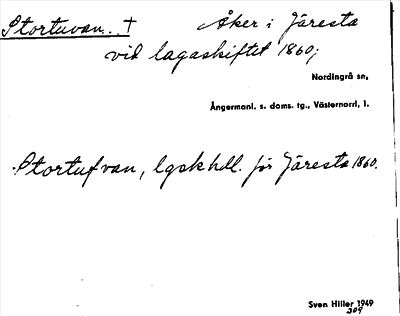 Stortuvan. † Åker i Järesta
vid lagaskiftet 1860;
Nordingrå sn,
Ångermanl. s. doms. tg., Västernorrl. l.
Stortufvan, lgskhdl. för Järesta 1860.
Sven Hiller 1949
309